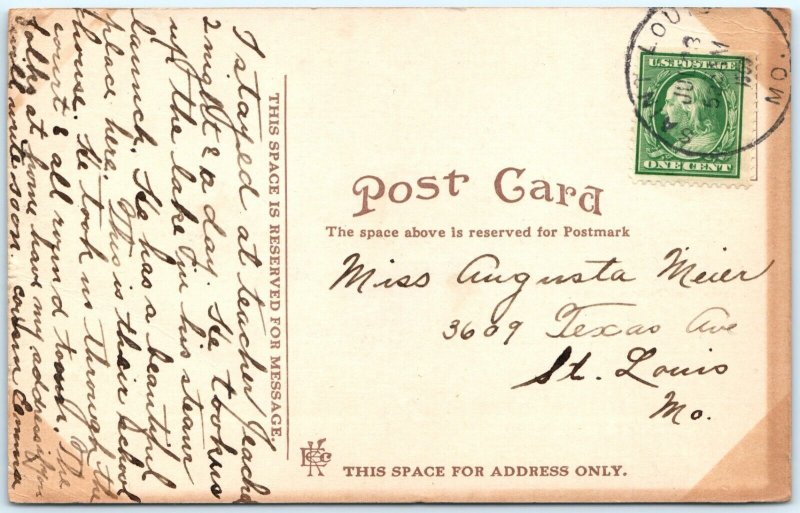 I stayed at teacher Jeache
2 night & a day. He took us
up the lake in his steam
launch. He has a beautiful
place here. This is their School
house. He took us through the
court & all round town. The
folks at home have my address if you
will write soon. cousin Emma
THIS SPACE IS RESERVED FOR MESSAGE.
SAINT LOUIS
MO.
U.S. POSTAGE
ONE CENT
Post Card
The space above is reserved for Postmark
Miss Augusta Meier
3609 Texas Ave
St. Louis
Mo.
THIS SPACE FOR ADDRESS ONLY.